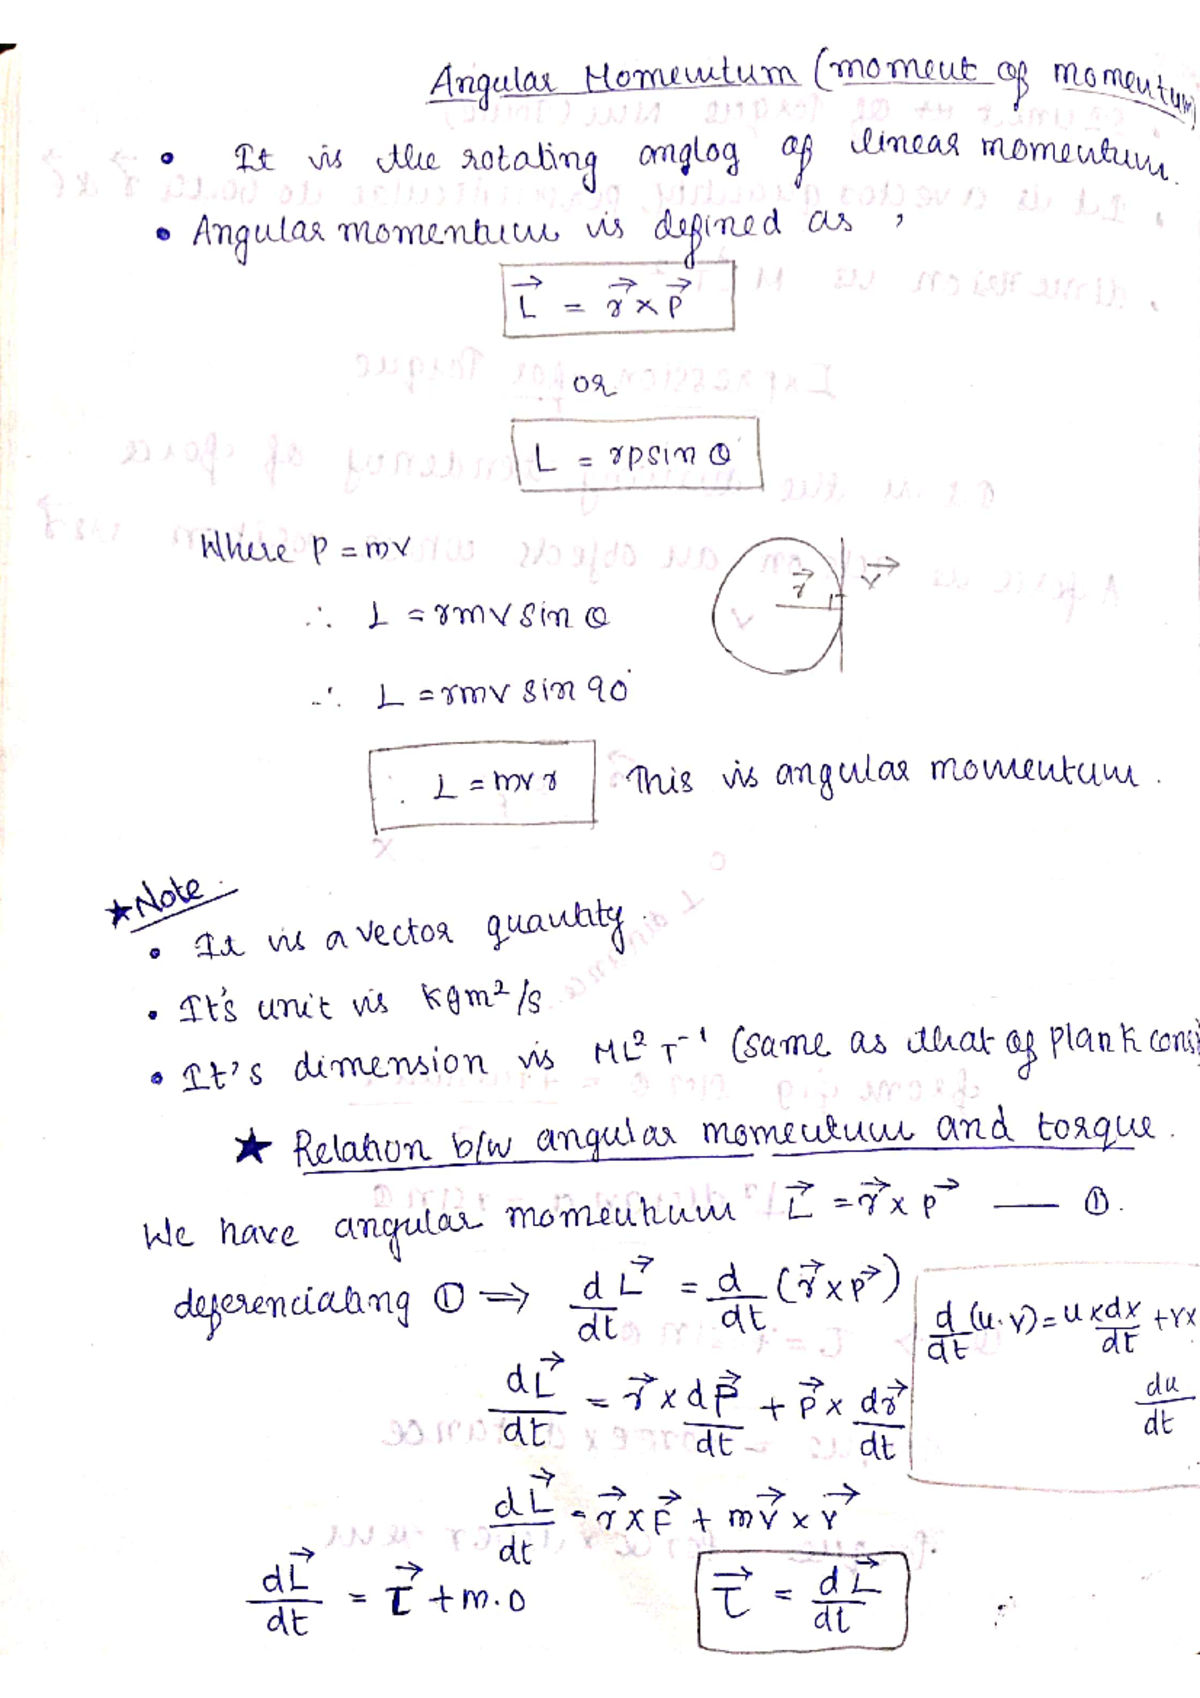 Angular Momentum (moment of momentum)
• It is the rotating anglog of linear momentum.
• Angular momentum is defined as ,
L⃗ = r⃗ × P⃗
or
L = rpsin θ
Where P = mv
∴ L = rmv sin θ
r⃗ v⃗
∴ L = rmv sin 90°
∴ L = mvr This is angular momentum.
★ Note.
• It is a vector quantity.
• It's unit is kgm²/s
• It's dimension is ML² T⁻¹ (same as that of plank cons
★ Relation b/w angular momentum and torque.
We have angular momentum L⃗ = r⃗ × p⃗ — ①.
deferenciating ① ⇒ dL⃗/dt = d/dt (r⃗ × p⃗)
d/dt (u·v) = u × dx/dt + v×
du/dt
dL⃗/dt = r⃗ × dP⃗/dt + P⃗ × dr⃗/dt
dL⃗/dt = r⃗ × F⃗ + mv⃗ × v⃗
dL⃗/dt = τ⃗ + m.0
τ⃗ = dL⃗/dt